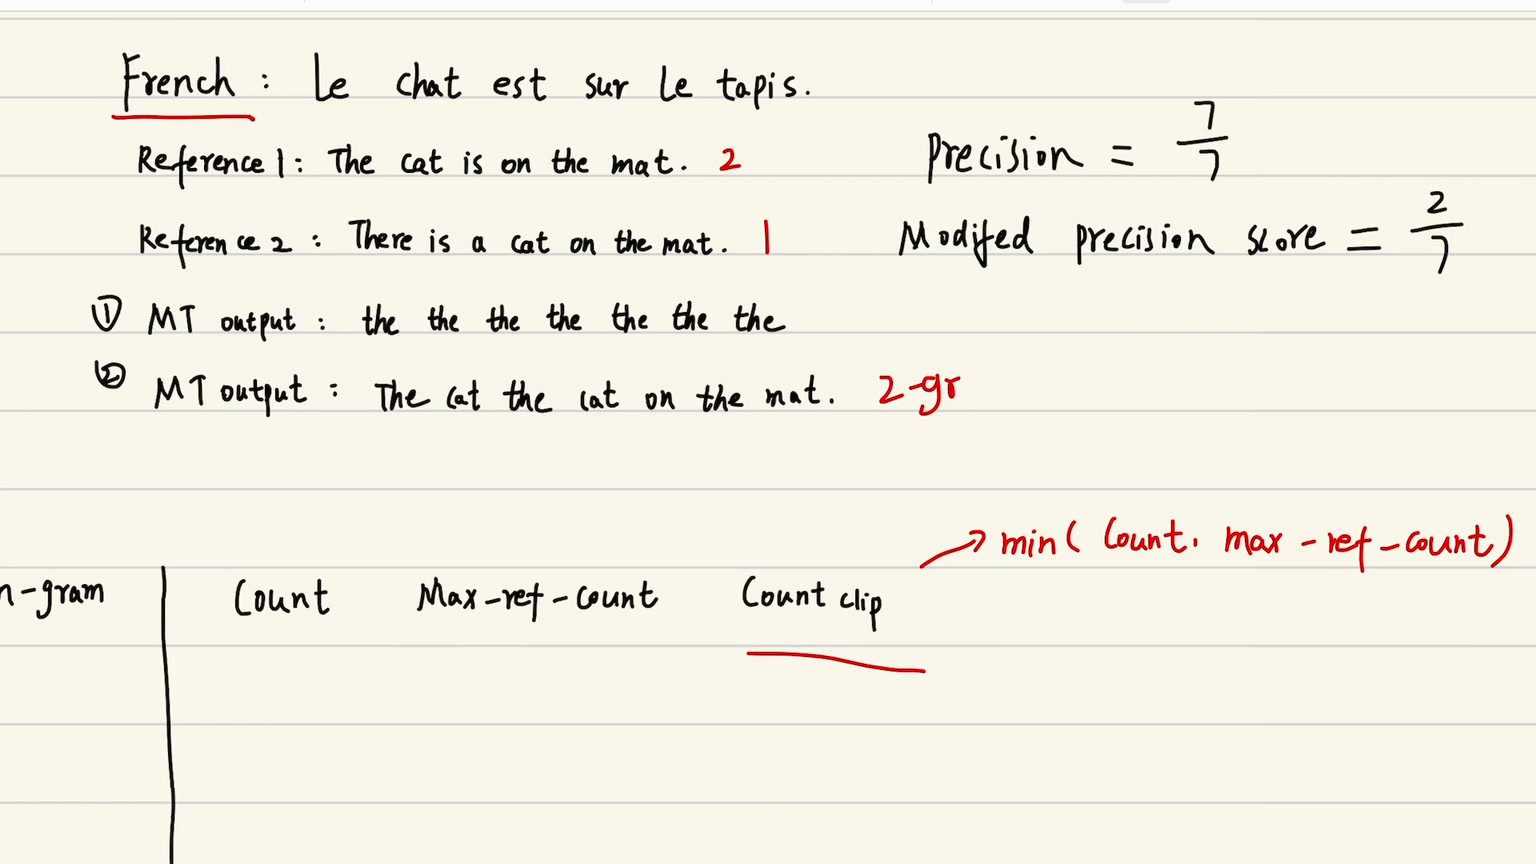 French : Le chat est sur le tapis.
Reference 1 : The cat is on the mat. 2
Precision = 7/7
Reference 2 : There is a cat on the mat. 1
Modifed precision score = 2/7
① MT output : the the the the the the the
② MT output : The cat the cat on the mat. 2-gr
→ min( Count, max-ref-count)
n-gram Count Max-ref-count Count clip